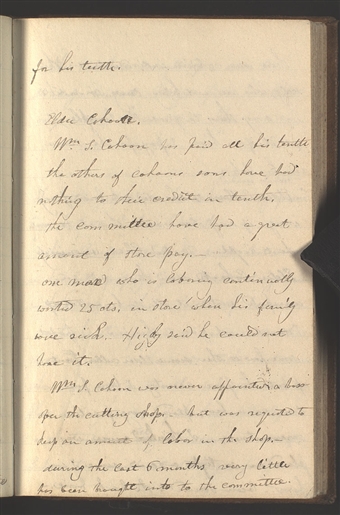 for his tenth.
Elder Cahoon.
Wm. F. Cahoon has paid all his tenth
the others of cahoons sons have had
nothing to their credit in tenth.
the committee have had a great
amount of store pay.—
one man who is laboring continually
wanted 25 cts. in store when his family
were sick. Higby said he could not
have it.
Wm. F. Cahoon was never appointed a boss
over the cutting shop. but was requested to
keep an account of labor in the shop.—
during the last 6 months very little
has been brought into to the committee.